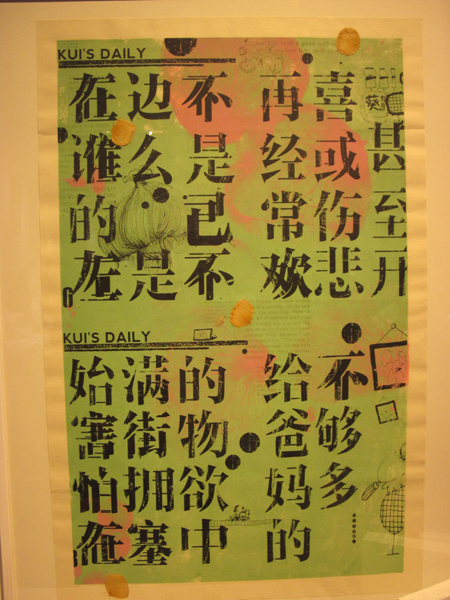 KUI'S DAILY
在谁的左
边么是
不是已不
再经常欢
喜或伤悲
葵
甚至开
KUI'S DAILY
始害怕在
满街拥塞
的物欲中
给爸妈的
不够多